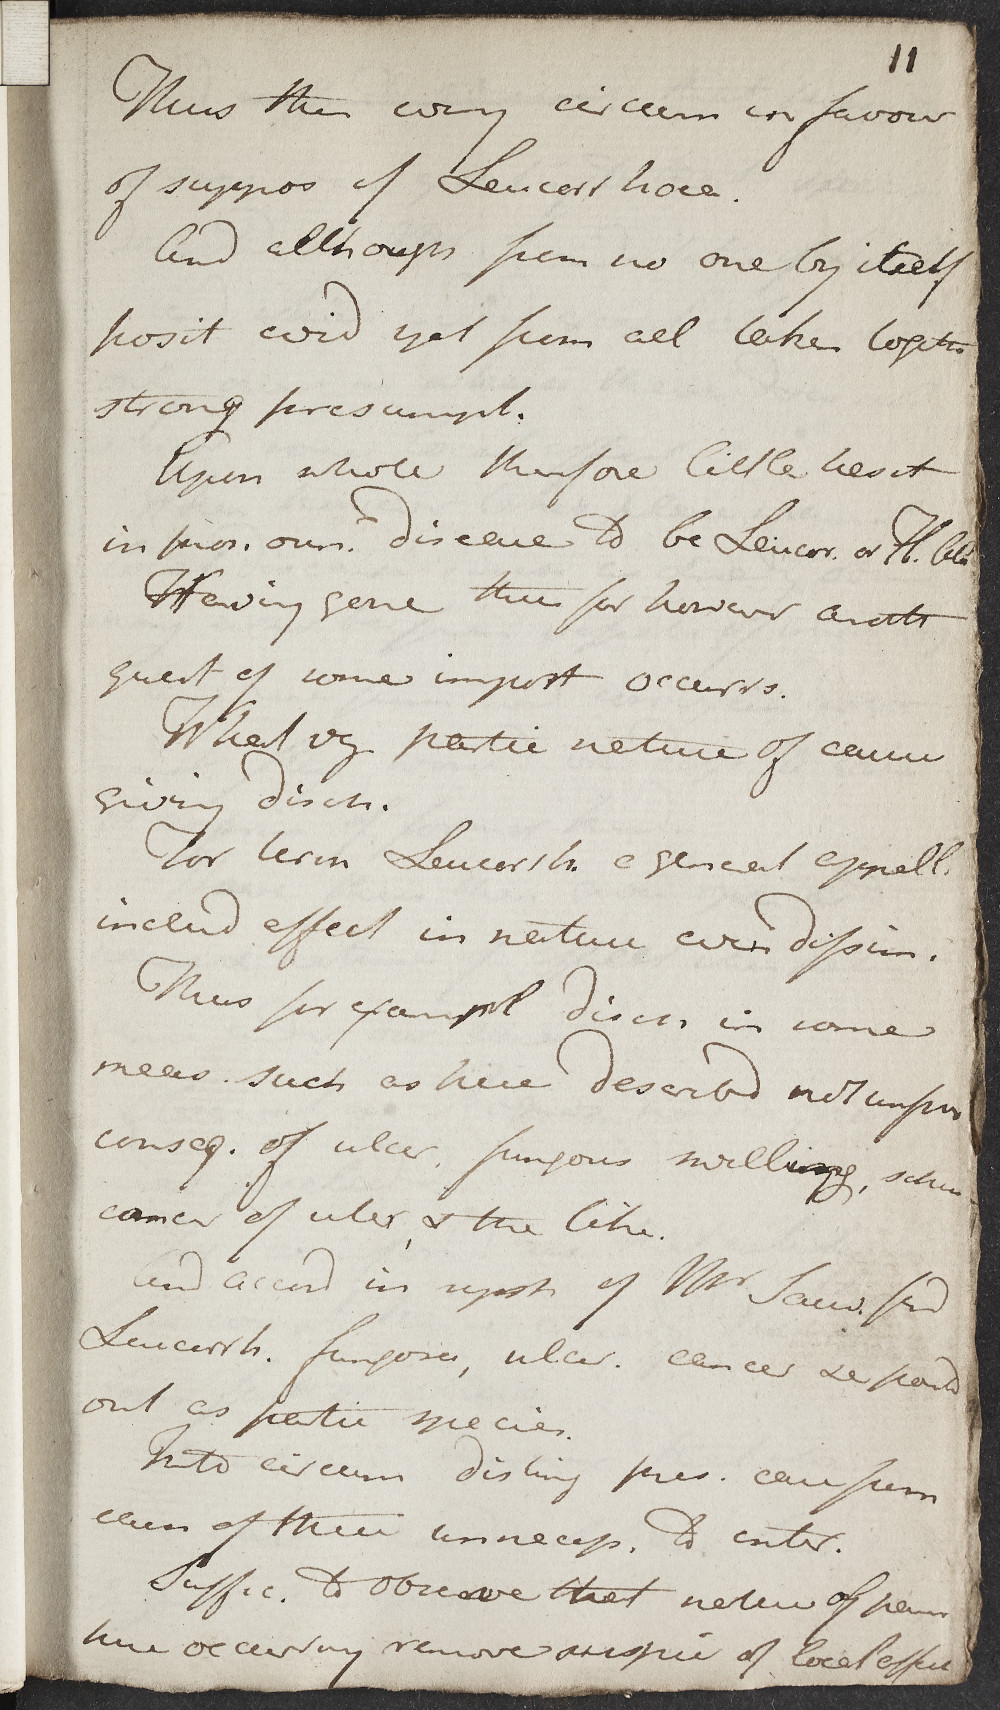 11
Thus then every circum in favour
of suppos of Leucorrhoea.
And although from no one by itself
posit evid yet from all taken togethr
strong presumpt.
Upon whole therefore little hesit
in pronoun.g disease to be Leucor. or Fl. alb
Having gone thus far however anoth
quest of some import occurrs.
What vz partic nature of cause
giving disch.
For term Leucorrh. a general appell.
includ effect in nature even dissim.
Thus for exampl disch in some
meas. such as here described not unfreq
conseq. of ulcer. fungous swelling, schir-
cancer of uter, & the like.
And accord in nosol of Mr Sauv. find
Leucorrh. fungosa, ulcer. cancer &c point
out as partic species.
Into circum disting pres. case from
each of these unnecess. to enter.
Suffic. to observe that nature of pain
here occurring remove suspic of local affec